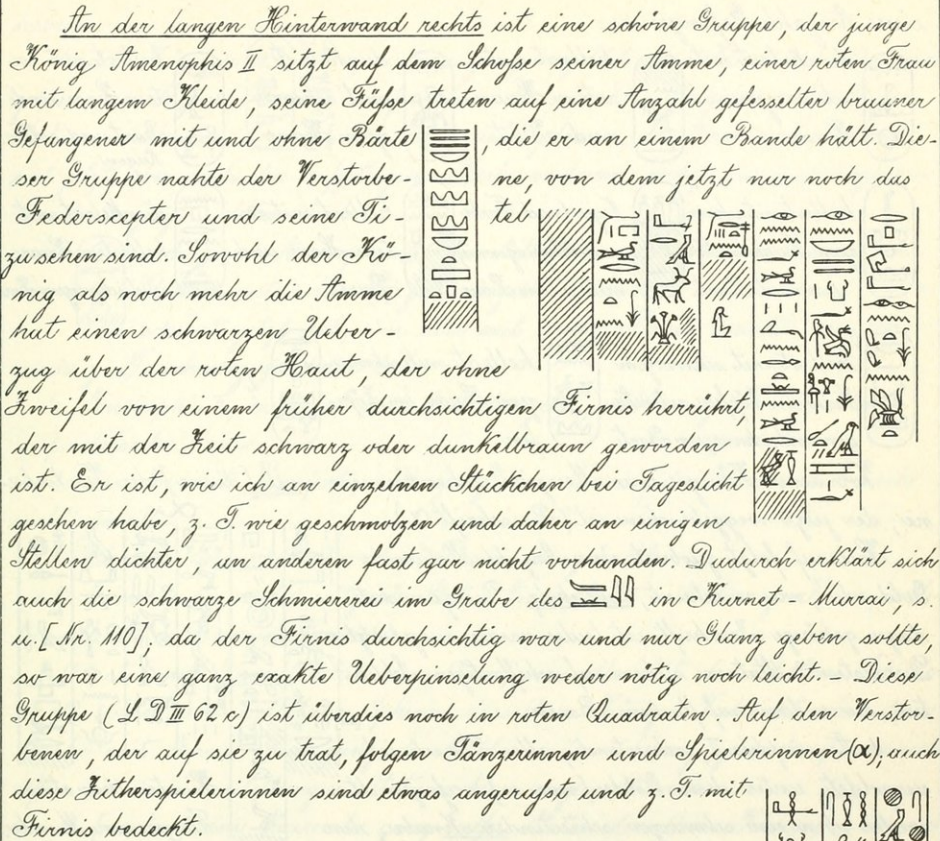 An der langen Hinterwand rechts ist eine schöne Gruppe, der junge
König Amenophis II sitzt auf dem Schoſse seiner Amme, einer roten Frau
mit langem Kleide, seine Füſse treten auf eine Anzahl gefesselter brauner
Gefangener mit und ohne Bärte, die er an einem Bande hält. Die-
ser Gruppe nahte der Verstorbe- ne, von dem jetzt nur noch das
Federscepter und seine Ti- tel
zu sehen sind. Sowohl der Kö-
nig als noch mehr die Amme
hat einen schwarzen Ueber-
zug über der roten Haut, der ohne
Zweifel von einem früher durchsichtigen Firnis herrührt,
der mit der Zeit schwarz oder dunkelbraun geworden
ist. Er ist, wie ich an einzelnen Stückchen bei Tageslicht
gesehen habe, z. T. wie geschmolzen und daher an einigen
Stellen dichter, an anderen fast gar nicht vorhanden. Dadurch erklärt sich
auch die schwarze Schmiererei im Grabe des in Kurnet-Murrai, s.
u. [Nr. 110]; da der Firnis durchsichtig war und nur Glanz geben sollte,
so war eine ganz exakte Ueberpinselung weder nötig noch leicht. – Diese
Gruppe (L D III 62 c) ist überdies noch in roten Quadraten. Auf den Verstor-
benen, der auf sie zu trat, folgen Tänzerinnen und Spielerinnen (α); auch
diese Zitherspielerinnen sind etwas angeruſst und z. T. mit
Firnis bedeckt.